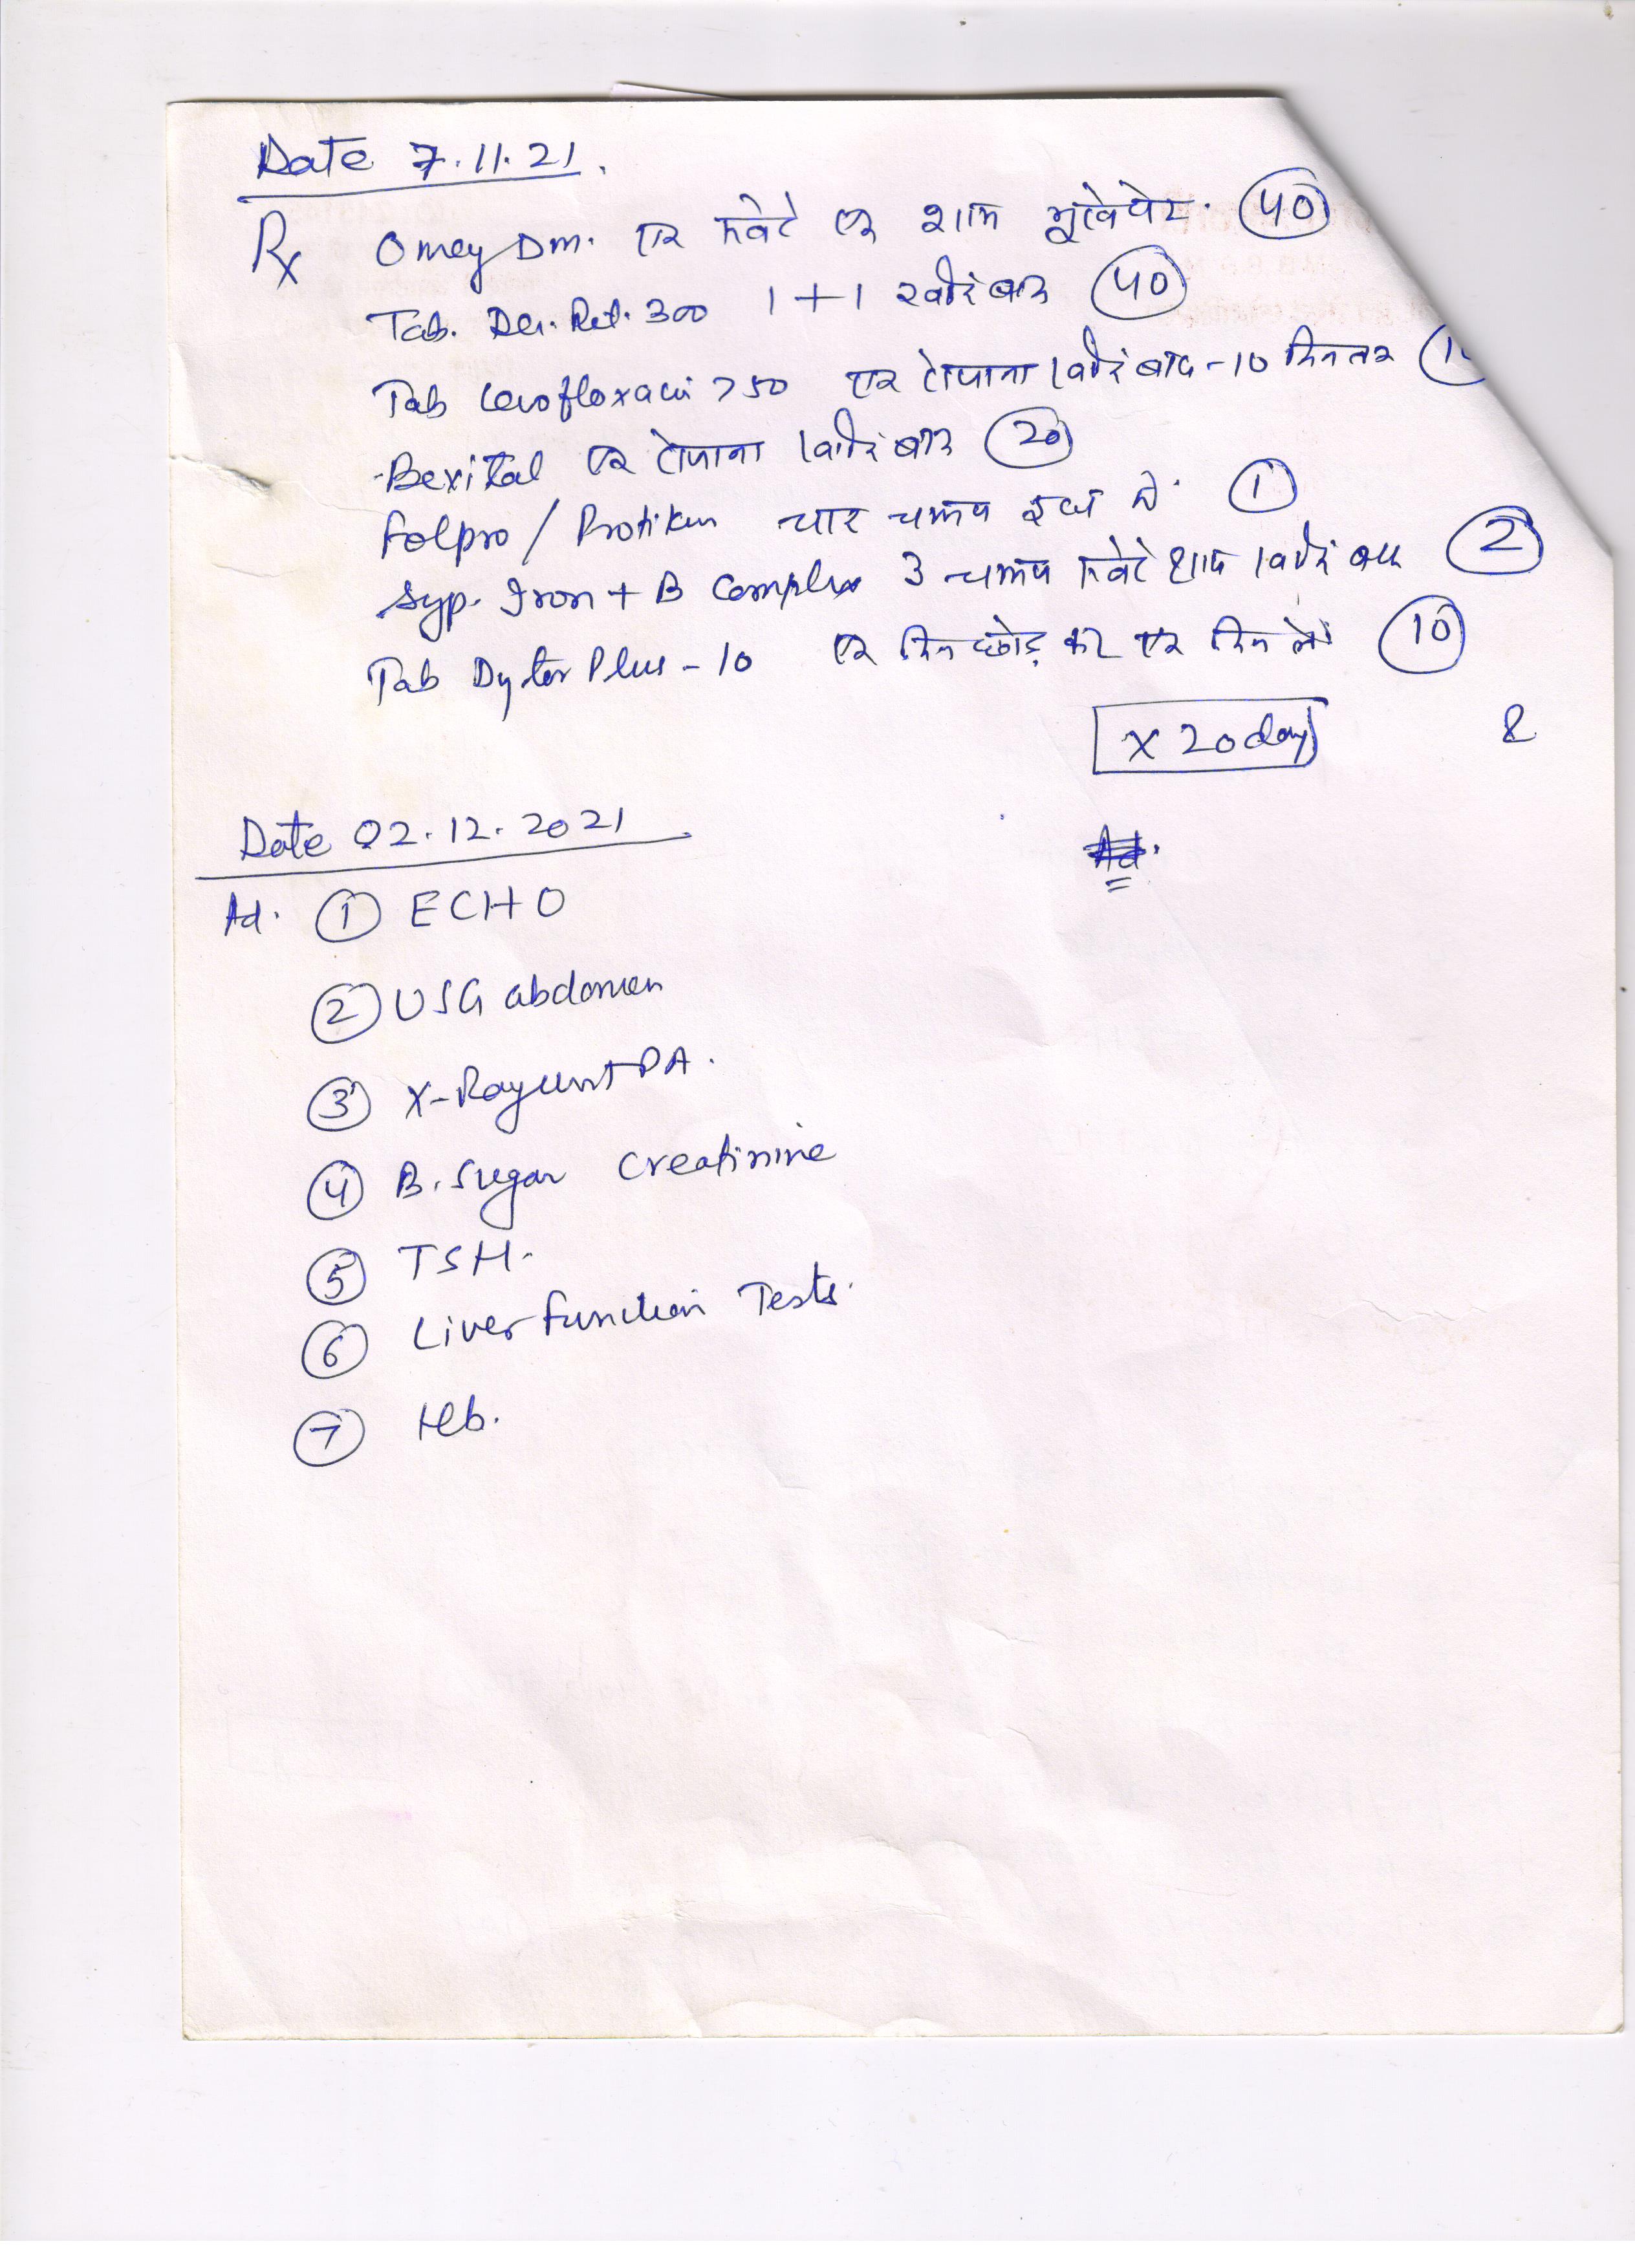 Date 7.11.21.
Rx Omey Dm. एक सवेरे एक शाम भूखे पेट. 40
Tab. Der. Ret. 300 1+1 खाने के बाद 40
Tab Levofloxacin 750 एक रोजाना खाने के बाद - 10 दिन तक
Bexital एक रोजाना खाने के बाद 20
Folpro / चार चम्मच 1
Syp. Iron + B Complex 3 चम्मच सवेरे शाम खाने के बाद 2
Tab Dytor Plus - 10 एक दिन छोड़ कर एक दिन लें 10
x 20 days
Date 02.12.2021
Ad. 1 ECHO
2 USG abdomen
3 X-Ray chest PA.
4 B. Sugar Creatinine
5 TSH.
6 Liver function Tests.
7 Hb.